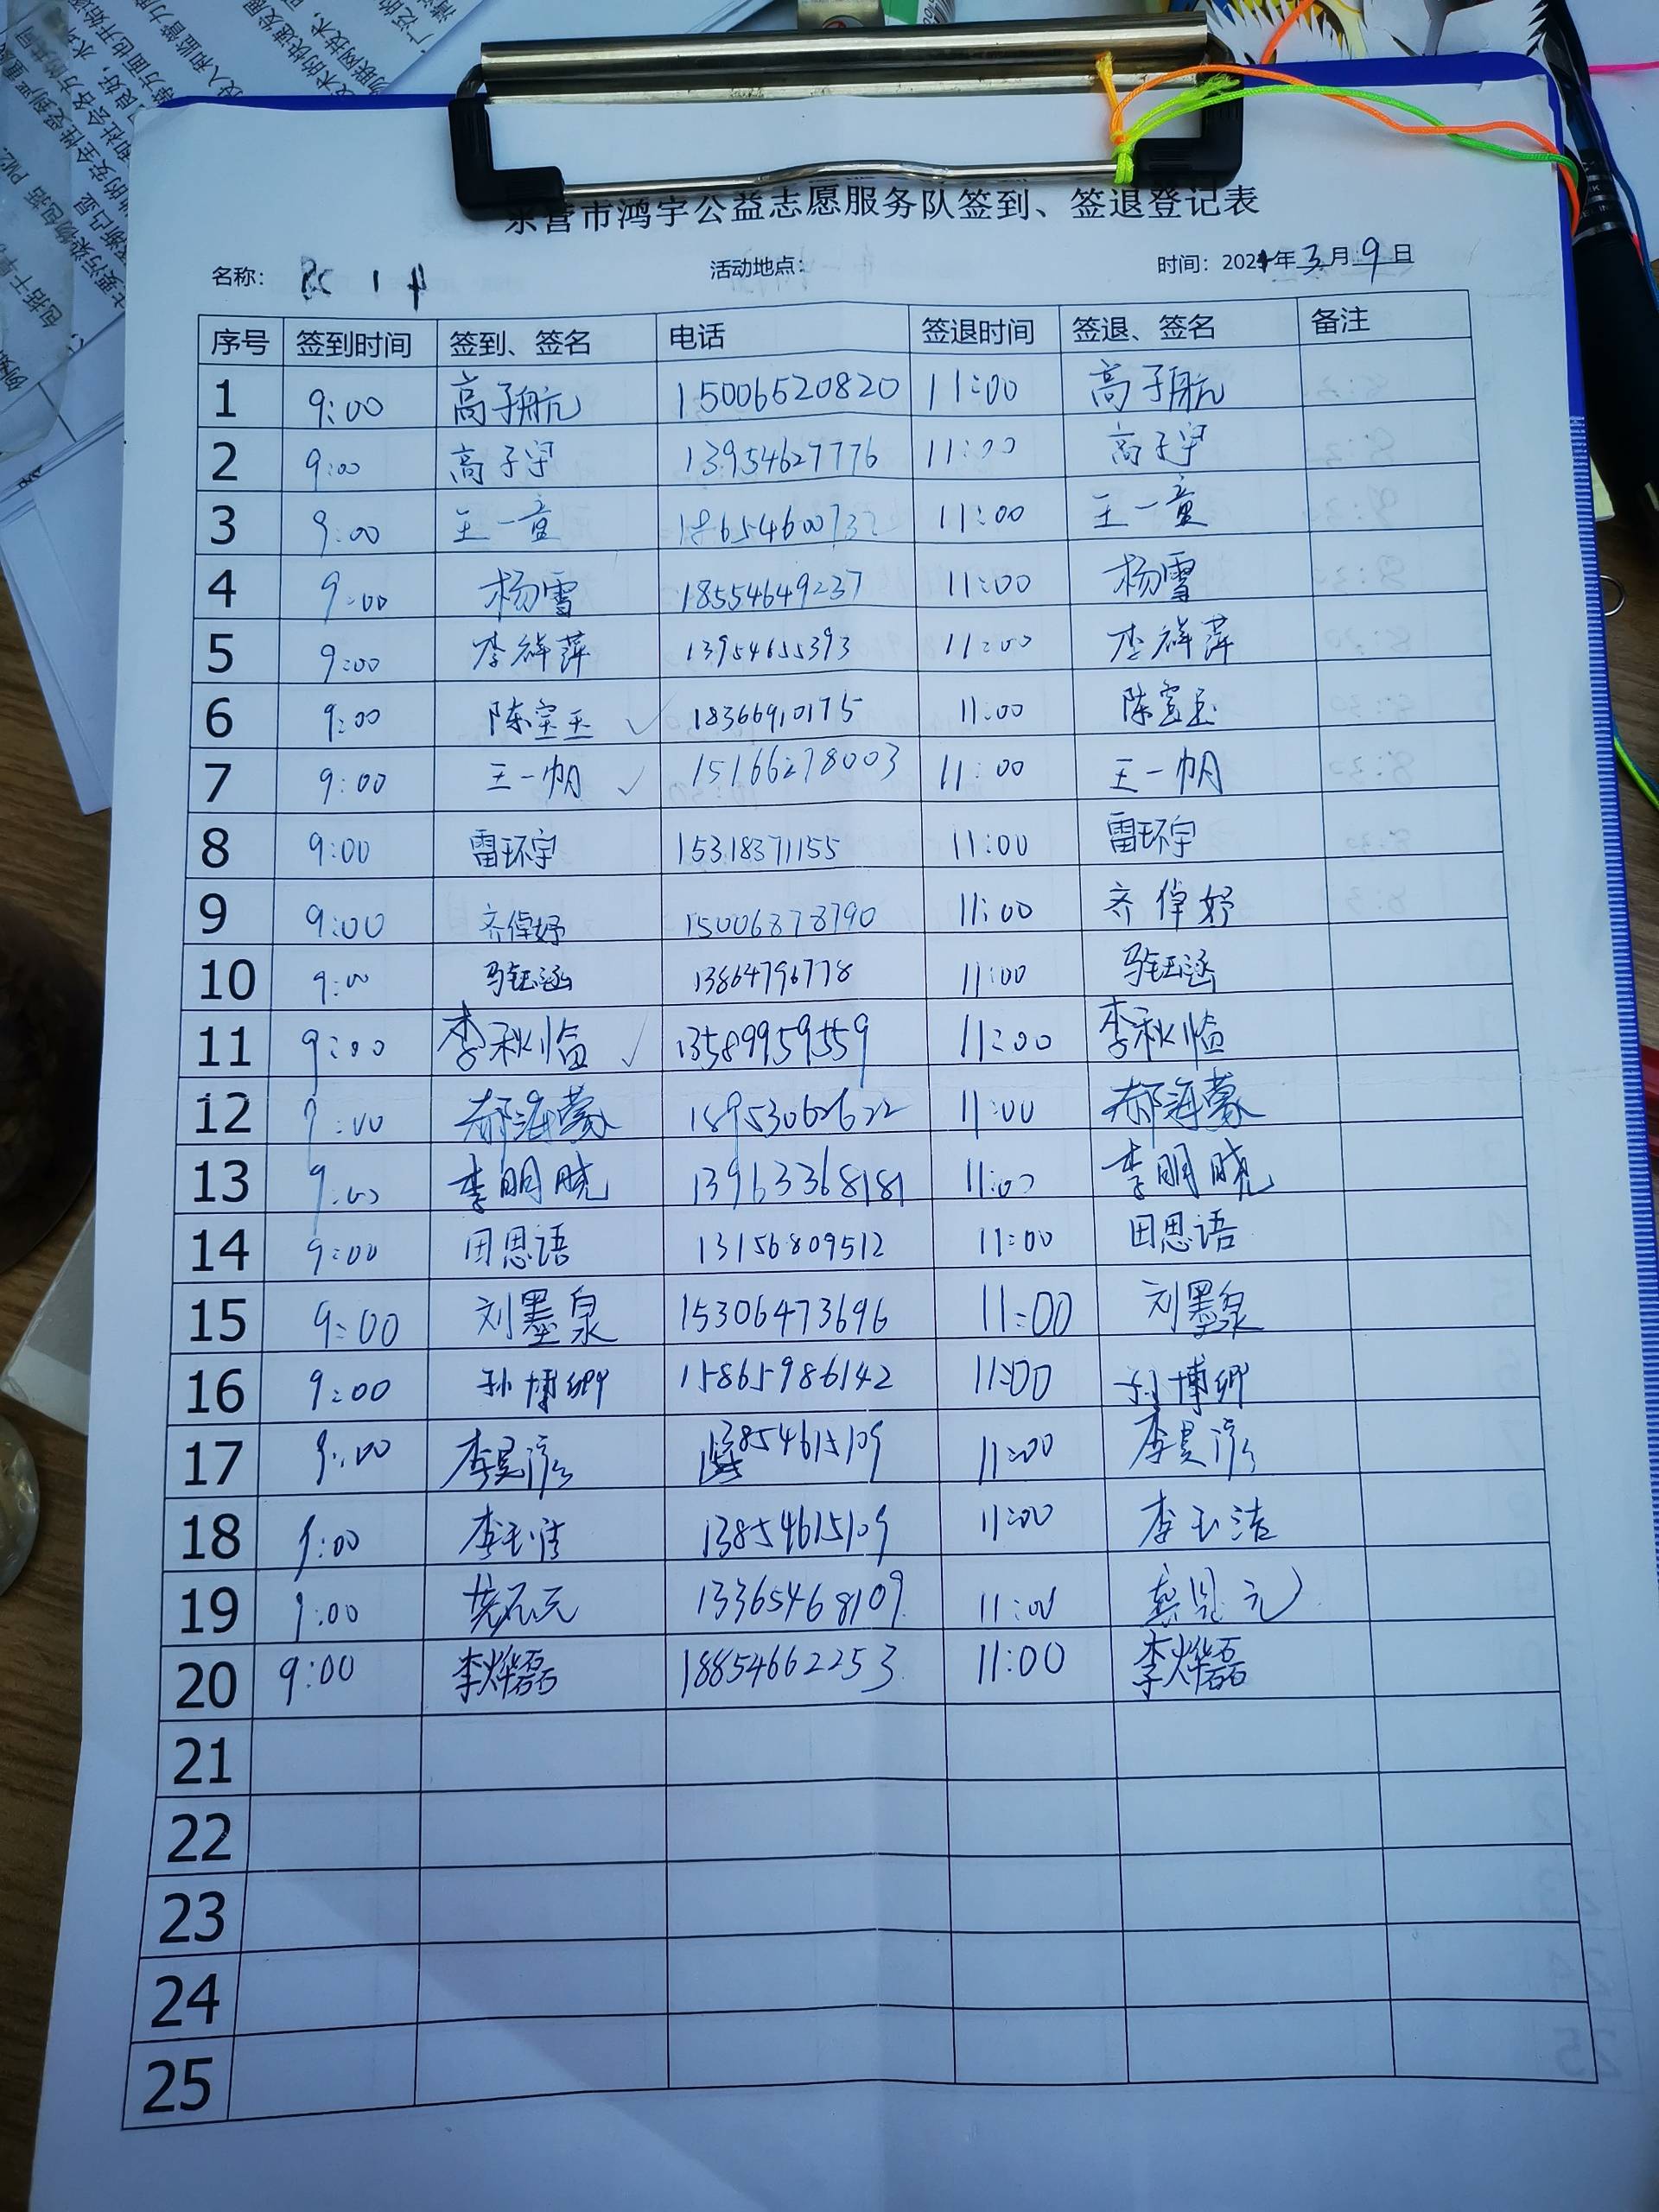 东营市鸿宇公益志愿服务队签到、签退登记表
名称: 活动地点: 时间: 2024年3月9日
序号 签到时间 签到、签名 电话 签退时间 签退、签名 备注
1 9:00 高子航 15006520820 11:00 高子航
2 9:00 高子宇 13954627776 11:00 高子宇
3 9:00 王一童 18654600732 11:00 王一童
4 9:00 杨雪 18554649237 11:00 杨雪
5 9:00 李祥萍 13954655393 11:00 李祥萍
6 9:00 陈宝玉 ✓ 18366910175 11:00 陈宝玉
7 9:00 王一帆 ✓ 15166278003 11:00 王一帆
8 9:00 雷环宇 15318371155 11:00 雷环宇
9 9:00 齐倬妤 15006878790 11:00 齐倬妤
10 9:00 马钰涵 13864796778 11:00 马钰涵
11 9:00 李秋临 ✓ 13589959559 11:00 李秋临
12 9:00 郝海蒙 18953062622 11:00 郝海蒙
13 9:00 李明晓 13963368181 11:00 李明晓
14 9:00 田思语 13156809512 11:00 田思语
15 9:00 刘墨泉 15306473696 11:00 刘墨泉
16 9:00 孙博卿 15865986142 11:00 孙博卿
17 9:00 李昊 13854615109 11:00 李昊
18 9:00 李玉洁 13854615109 11:00 李玉洁
19 9:00 13365468109 11:00
20 9:00 李烨磊 18854662253 11:00 李烨磊
21
22
23
24
25